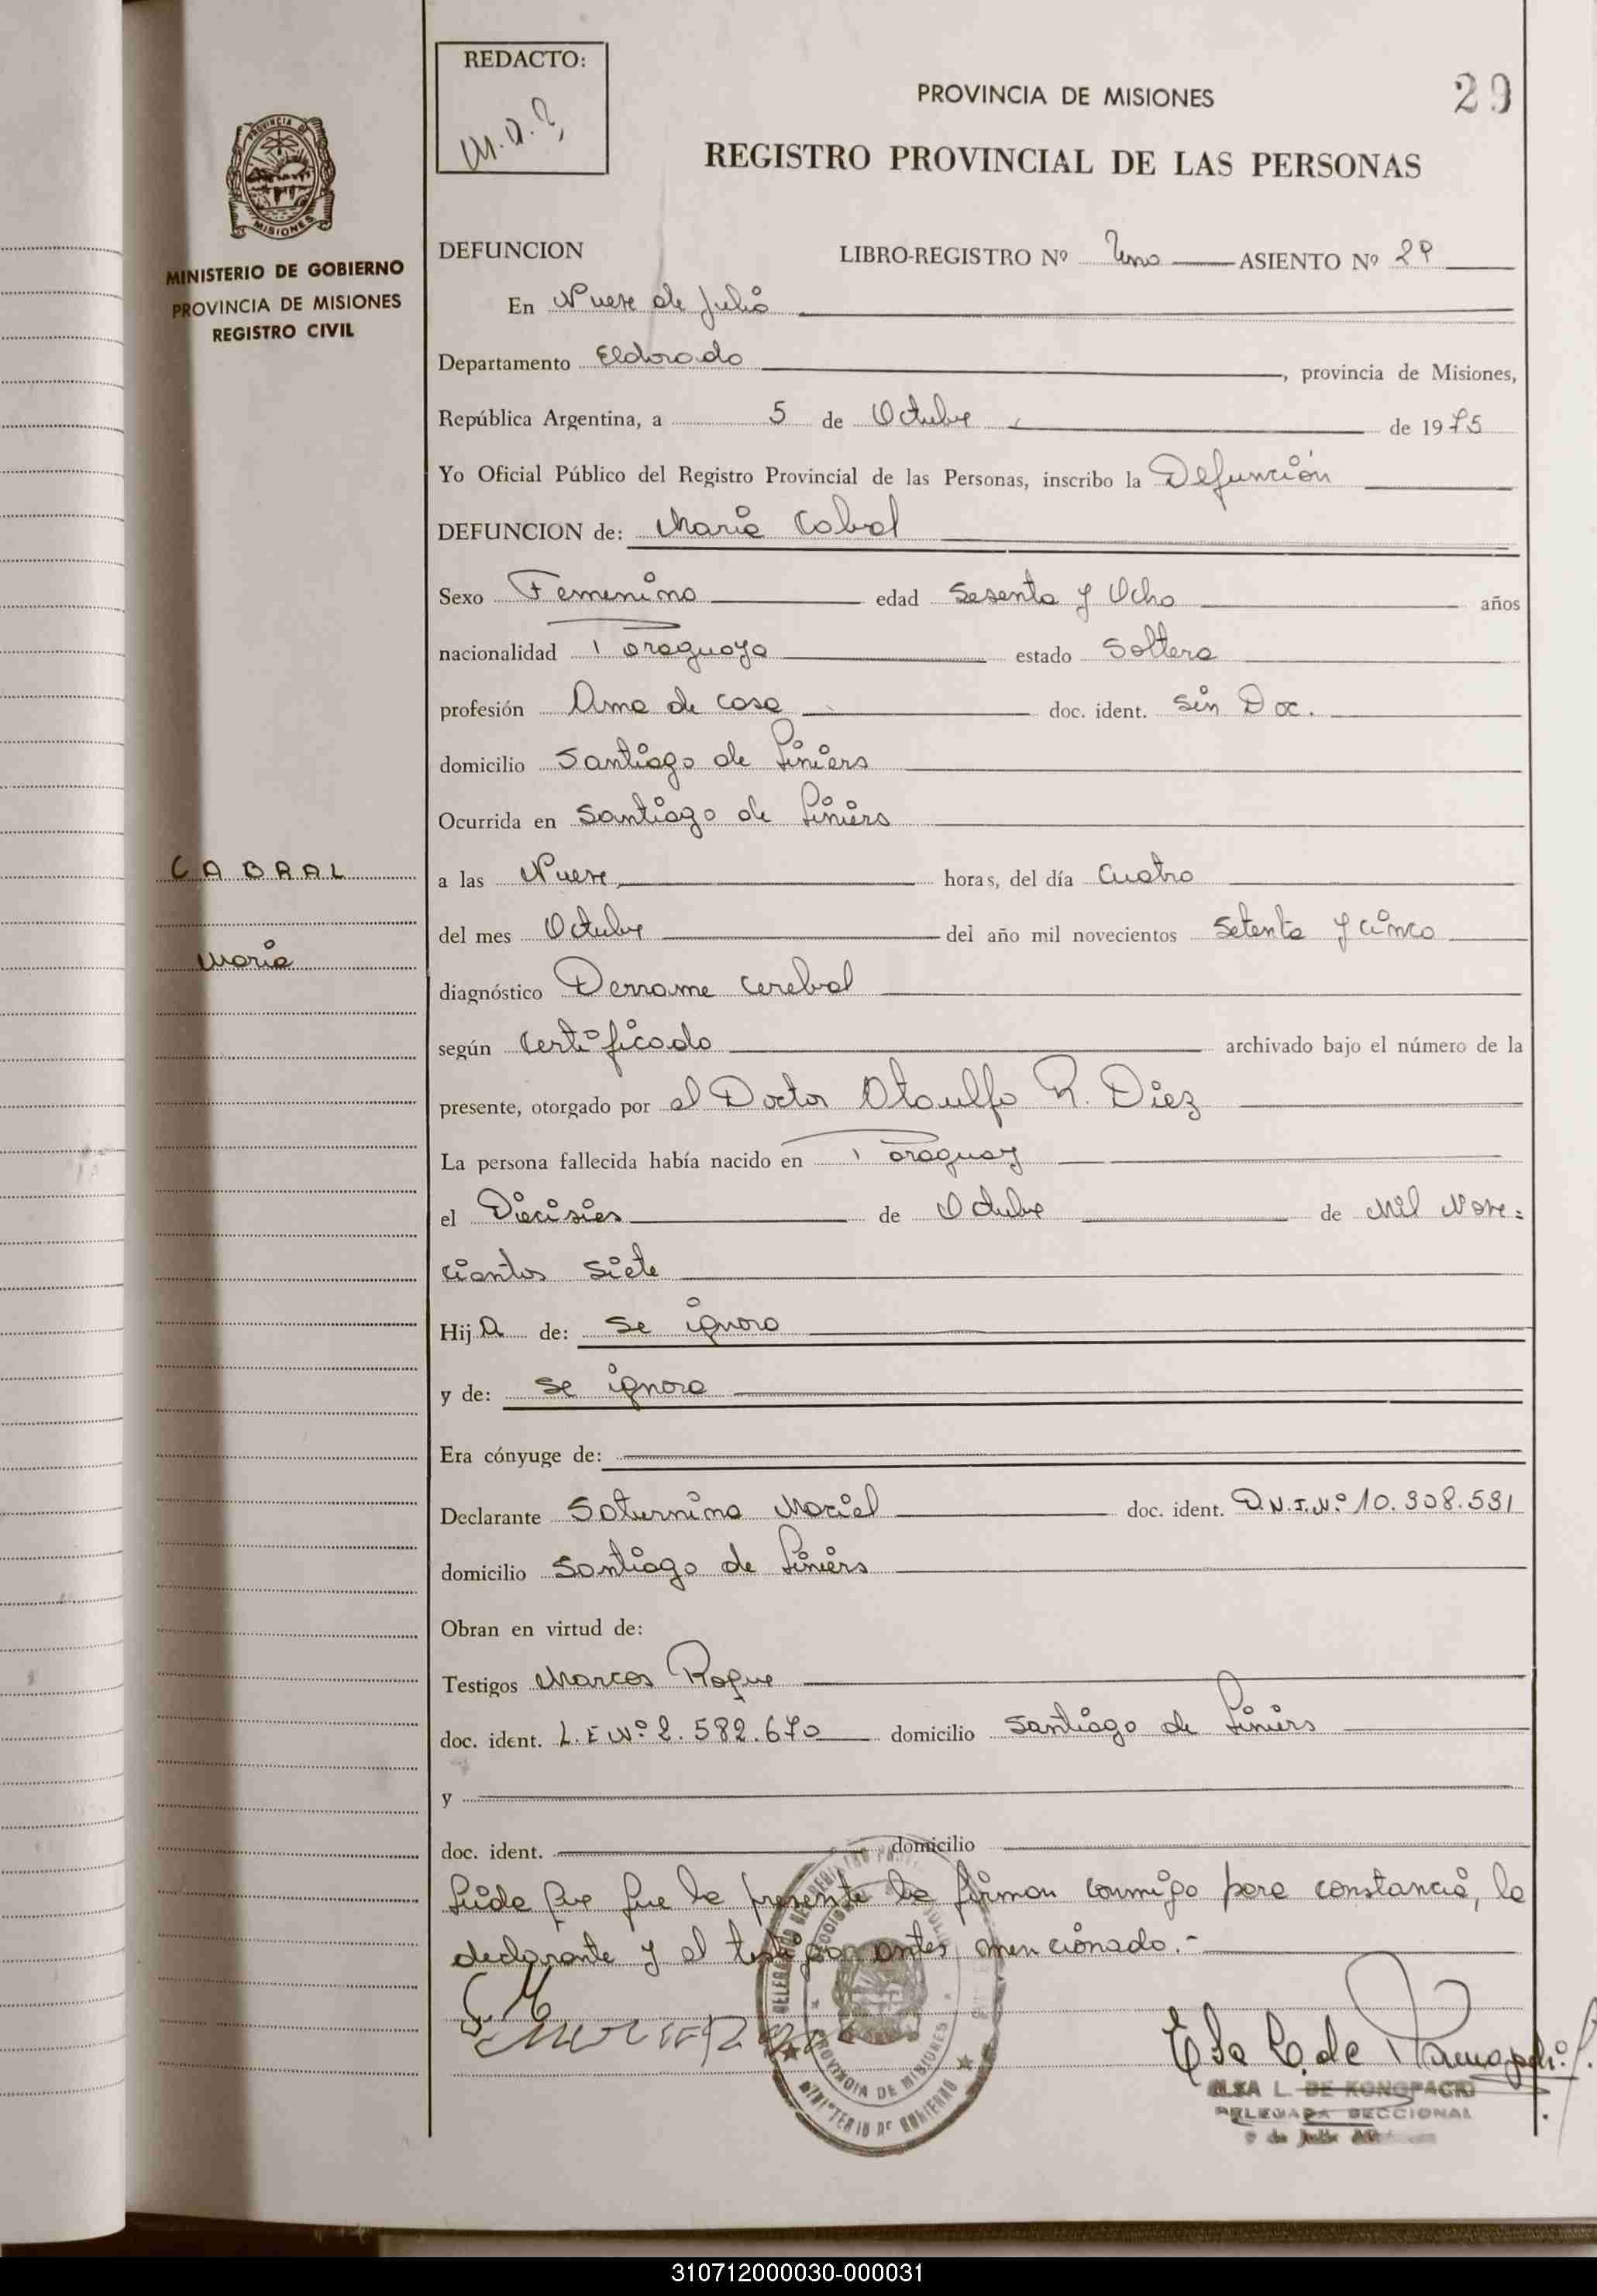 REDACTO:
PROVINCIA DE MISIONES
29
REGISTRO PROVINCIAL DE LAS PERSONAS
PROVINCIA DE
MISIONES
MINISTERIO DE GOBIERNO
PROVINCIA DE MISIONES
REGISTRO CIVIL
DEFUNCION LIBRO-REGISTRO Nº Uno ASIENTO Nº 29
En Nueve de Julio
Departamento Eldorado, provincia de Misiones,
República Argentina, a 5 de Octubre de 1975
Yo Oficial Público del Registro Provincial de las Personas, inscribo la Defunción
DEFUNCION de: María Cabral
Sexo Femenino edad Sesenta y Ocho años
nacionalidad Paraguaya estado Soltera
profesión Ama de casa doc. ident. Sin Doc.
domicilio Santiago de Liniers
Ocurrida en Santiago de Liniers
CABRAL
a las Nueve horas, del día Cuatro
del mes Octubre del año mil novecientos Setenta y cinco
María
diagnóstico Derrame cerebral
según Certificado archivado bajo el número de la
presente, otorgado por el Doctor Otaulfo R. Diez
La persona fallecida había nacido en Paraguay
el Diecisies de Octubre de Mil Nove=
cientos Siete
Hija de: Se ignora
y de: Se ignora
Era cónyuge de:
Declarante Saturnina Maciel doc. ident. D.N.I.Nº 10.308.531
domicilio Santiago de Liniers
Obran en virtud de:
Testigos Marcos Roque
doc. ident. L.E Nº 2.582.670 domicilio Santiago de Liniers
y
doc. ident. domicilio
Leida que fue la presente la firman conmigo para constancia, la
declarante y el testigo antes mencionado.-
S. M
Elsa L. de Konopacki
ELSA L. DE KONOPACKI
DELEGADA SECCIONAL
9 de Julio
PROVINCIA DE MISIONES
MINISTERIO DE GOBIERNO
310712000030-000031